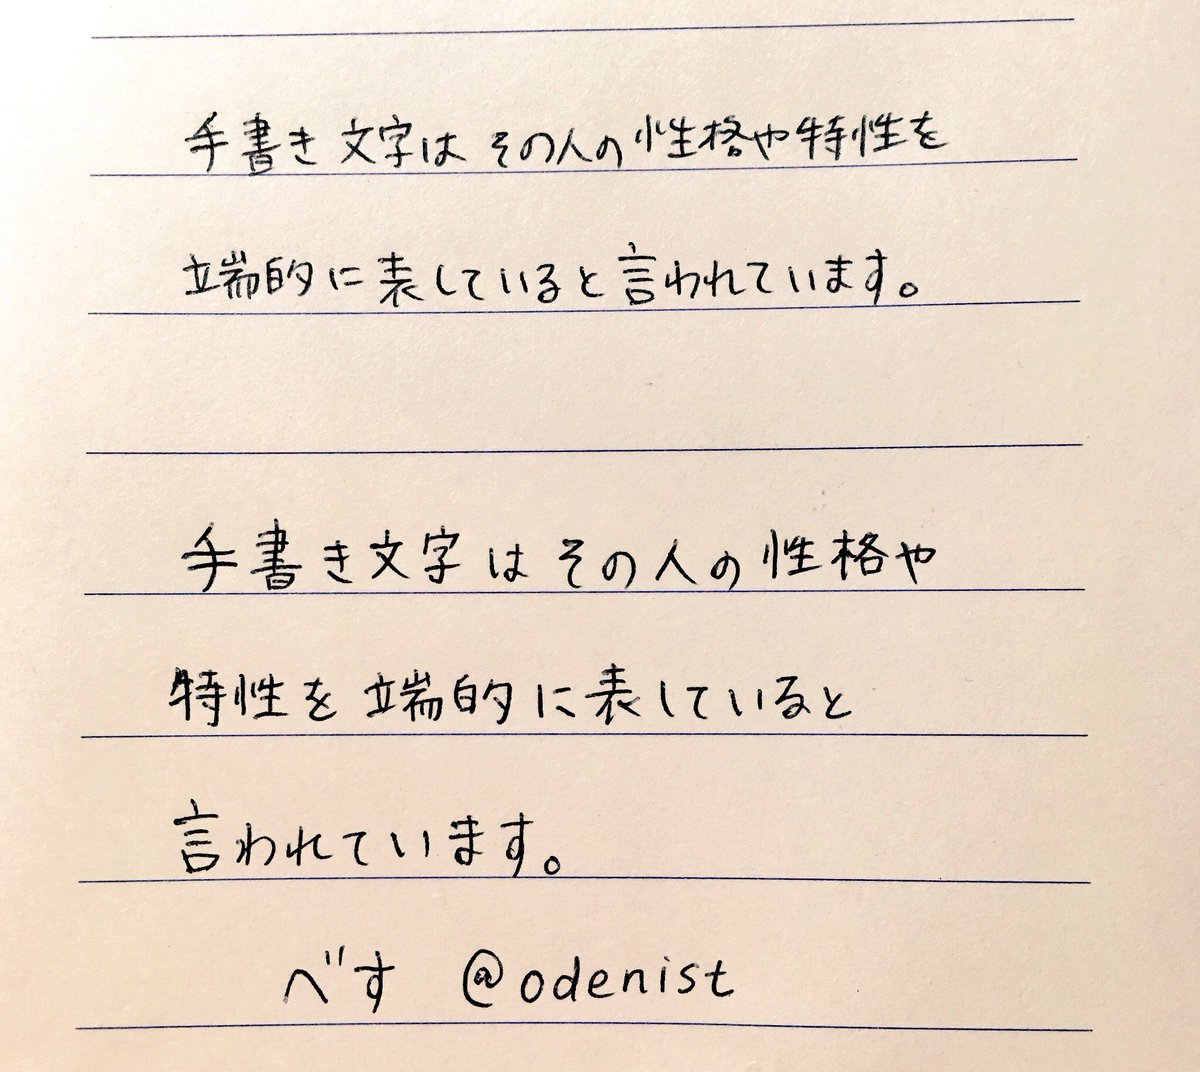 手書き文字はその人の性格や特性を
端的に表していると言われています。
手書き文字はその人の性格や
特性を端的に表していると
言われています。
べす @odenist